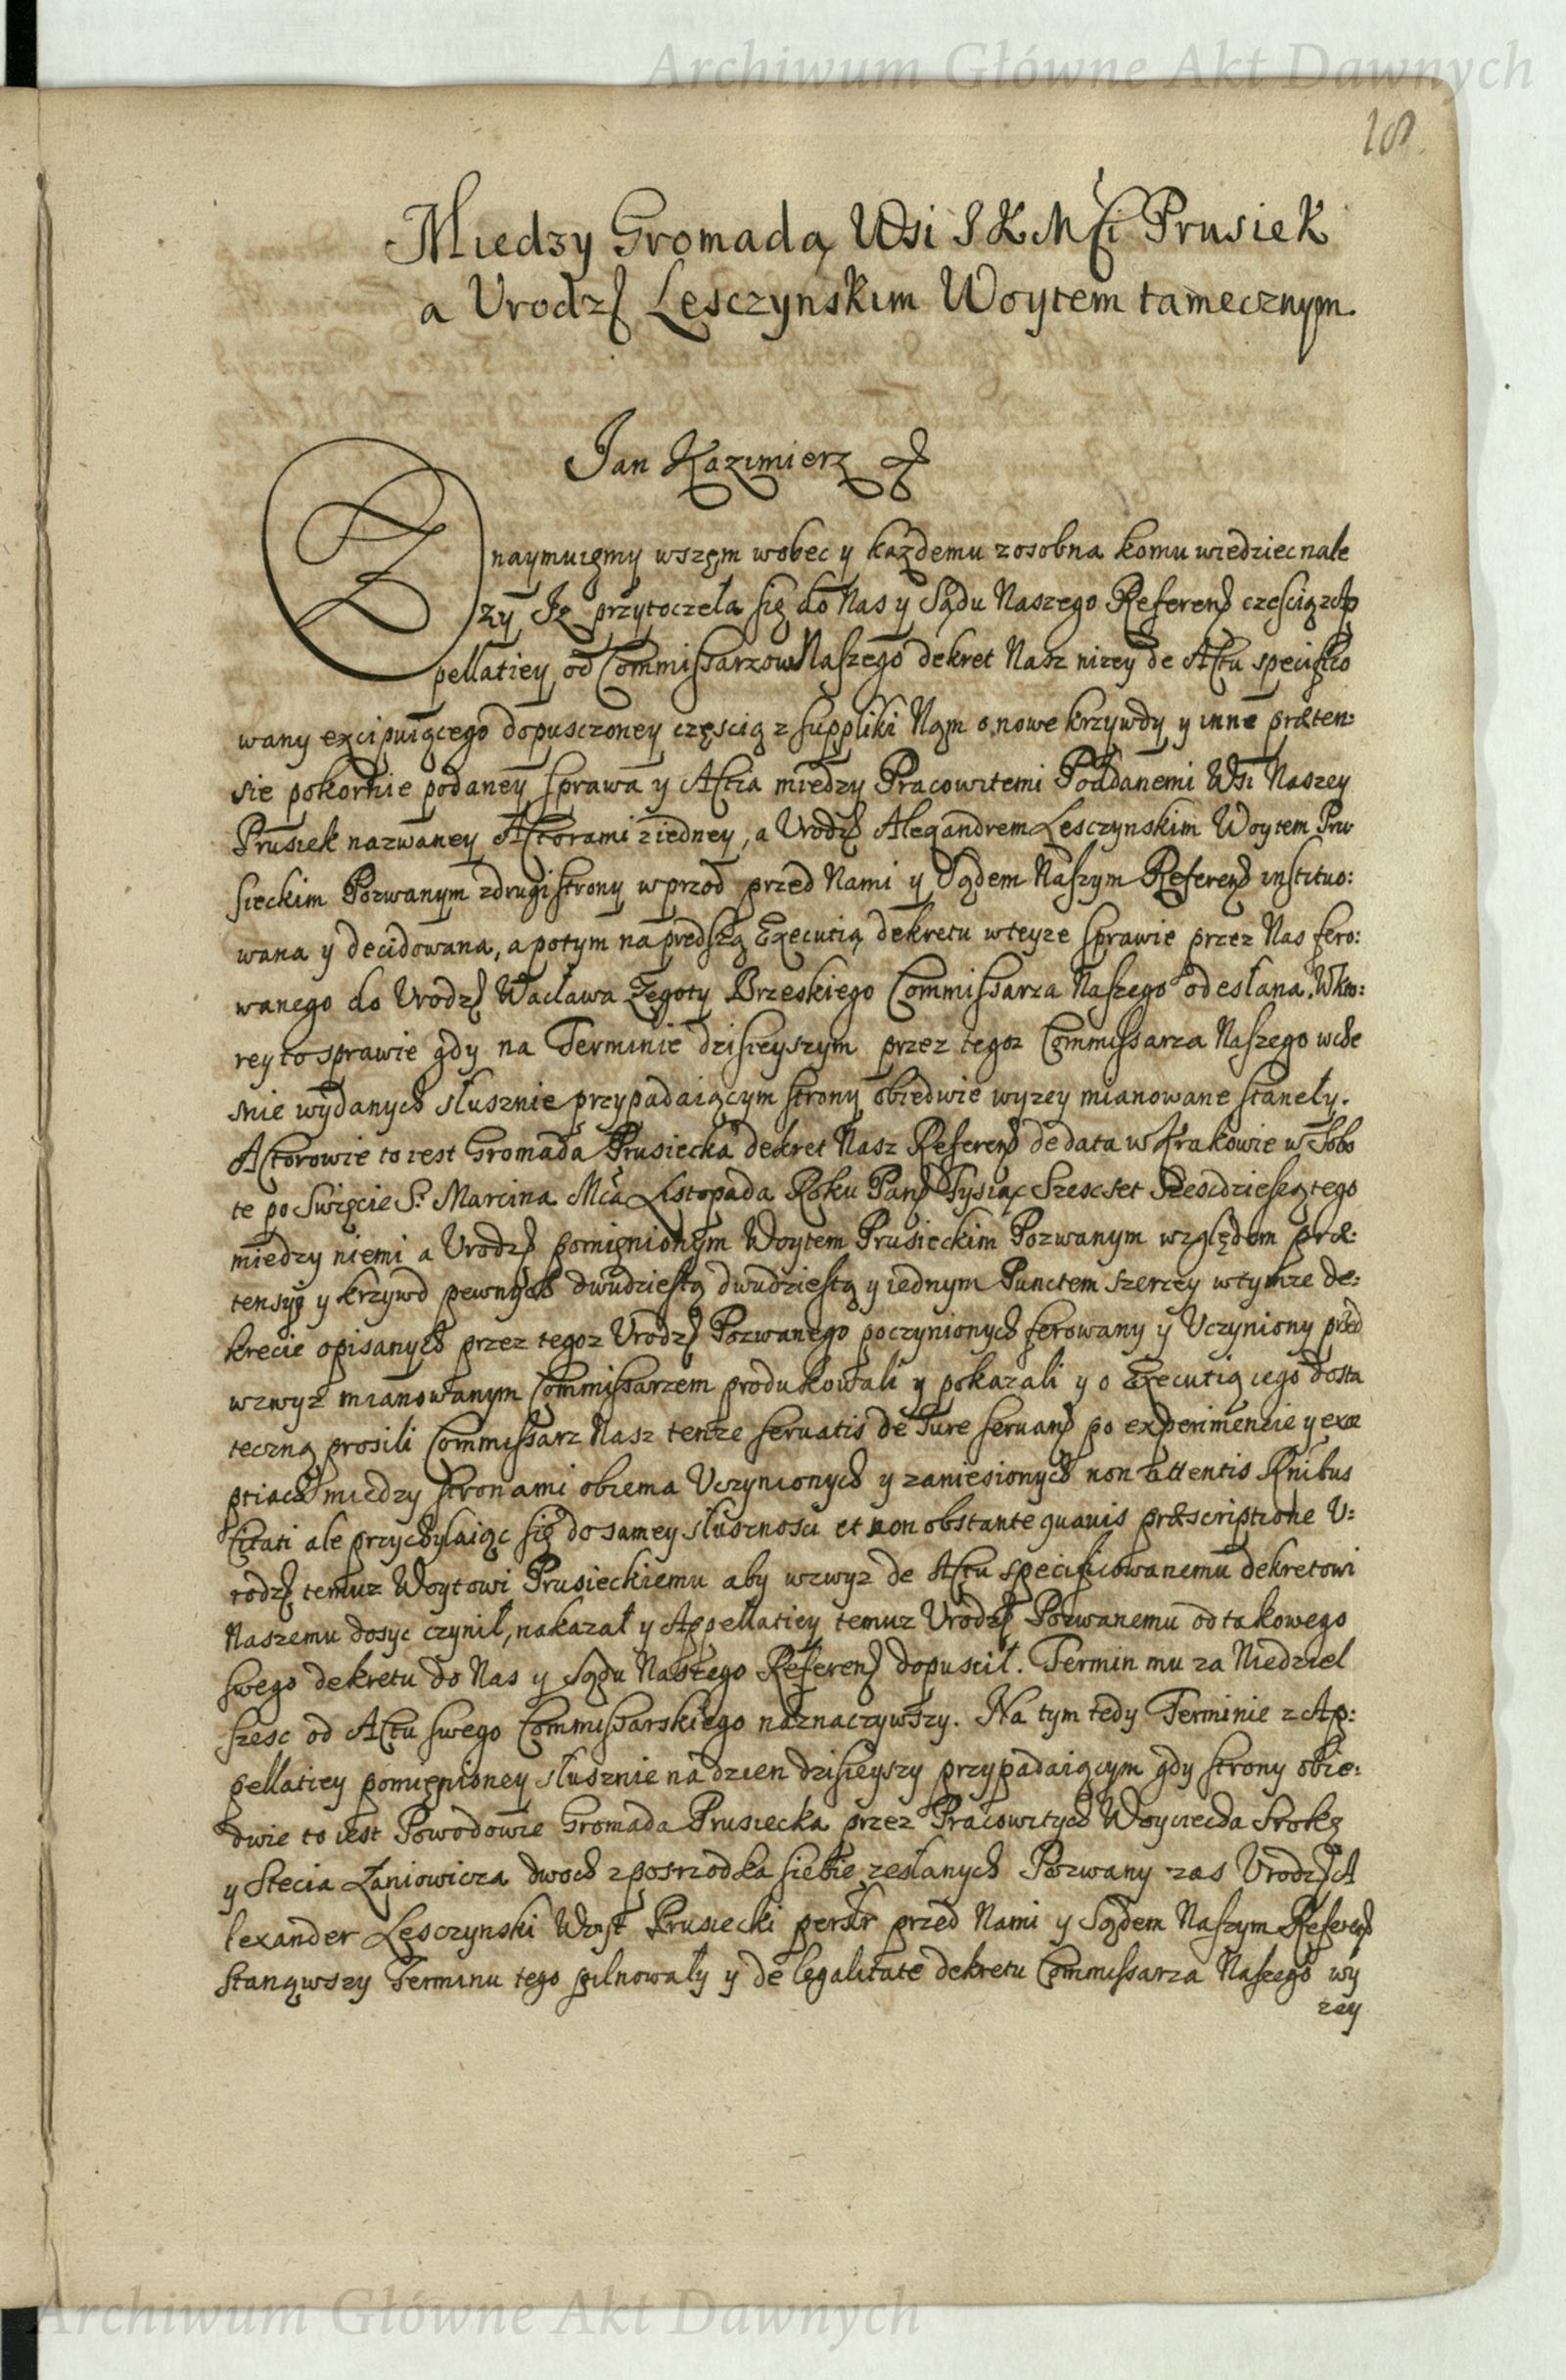 Archiwum Główne Akt Dawnych
18
Miedzy Gromadą Wsi J K Mści Prusiek
a Vrodz Lesczynskim Woytem tamecznym.
Jan Kazimierz
Znaymuięmy wszęm wobec y każdemu zosobna komu wiedziec nale
zy Iz przytoczeła się do Nas y Sądu Naszego Referen częscią z Ap
pellatiey od Commissarzow Naszego dekret Nasz nizey de Actu specifico
wany excipuiącego dopusczoney częscią z suppliki Nąm o nowe krzywdy y inne præten:
sie pokornie podaney sprawa y Actia miedzy Pracowitemi Poddanemi Wsi Naszey
Prusiek nazwaney Actorami ziedney, a Vrodz Alexandrem Lesczynskim Woytem Pru
sieckim Pozwanym zdrugi strony wprzod przed Nami y Sądem Naszym Referen instituo:
wana y decidowana, a potym na prędszą Executią dekretu wteyze sprawie przez Nas fero:
wanego do Vrodz Wacława Zegoty Brzeskiego Commissarza Naszego odesłana. W kto:
rey to sprawie gdy na Terminie dzisieyszym przez tegoz Commissarza Naszego wcze
snie wydanych słusznie przypadaiącym strony obiedwie wyzey mianowane staneły.
Actorowie to iest Gromada Prusiecka dekret Nasz Referen de data w Krakowie w Sobo
te po Swięcie S. Marcina Mca Listopada Roku Pan Tysiąc Szescset Szescdziesiątego
miedzy niemi a Vrodz pomięnionym Woytem Prusieckim Pozwanym względem præ:
tensyi y krzywd pewnych dwudziestą dwudziestą y iednym Punctem szerzey wtymze de:
krecie opisanych przez tegoz Vrodz Pozwanego poczynionych ferowany y Vczyniony przed
wzwyz mianowanym Commissarzem produkowali y pokazali y o Executią iego dosta
teczną prosili Commissarz Nasz tenze servatis de Iure servan po experimencie y exce
ptiach miedzy stronami obiema Vczynionych y zaniesionych non attentis Rnibus
Citati ale przychylaiąc się do samey słusznosci et non obstante quavis præscriptione V:
rodz temuz Woytowi Prusieckiemu aby wzwyz de Actu specificowanemu dekretowi
Naszemu dosyc czynił, nakazał y Appellatiey temuz Vrodz Pozwanemu od takowego
swego dekretu do Nas y Sądu Naszego Referen dopuscił. Termin mu za Niedziel
szesc od Actu swego Commissarskiego naznaczywszy. Na tym tedy Terminie z Ap:
pellatiey pomięnioney słusznie na dzien dzisieyszy przypadaiącym gdy strony obie:
dwie to iest Powodowie Gromada Prusiecka przez Pracowitych Woyciecha Srokę
y Stecia Łaniowicza dwoch zposrzodka siebie zesłanych Pozwany zas Vrodz A
lexander Lesczynski Woyt Prusiecki persłr przed Nami y Sądem Naszym Referen
stanąwszy Terminu tego pilnowały y de legalitate dekretu Commissarza Naszego wy
zey
Archiwum Główne Akt Dawnych